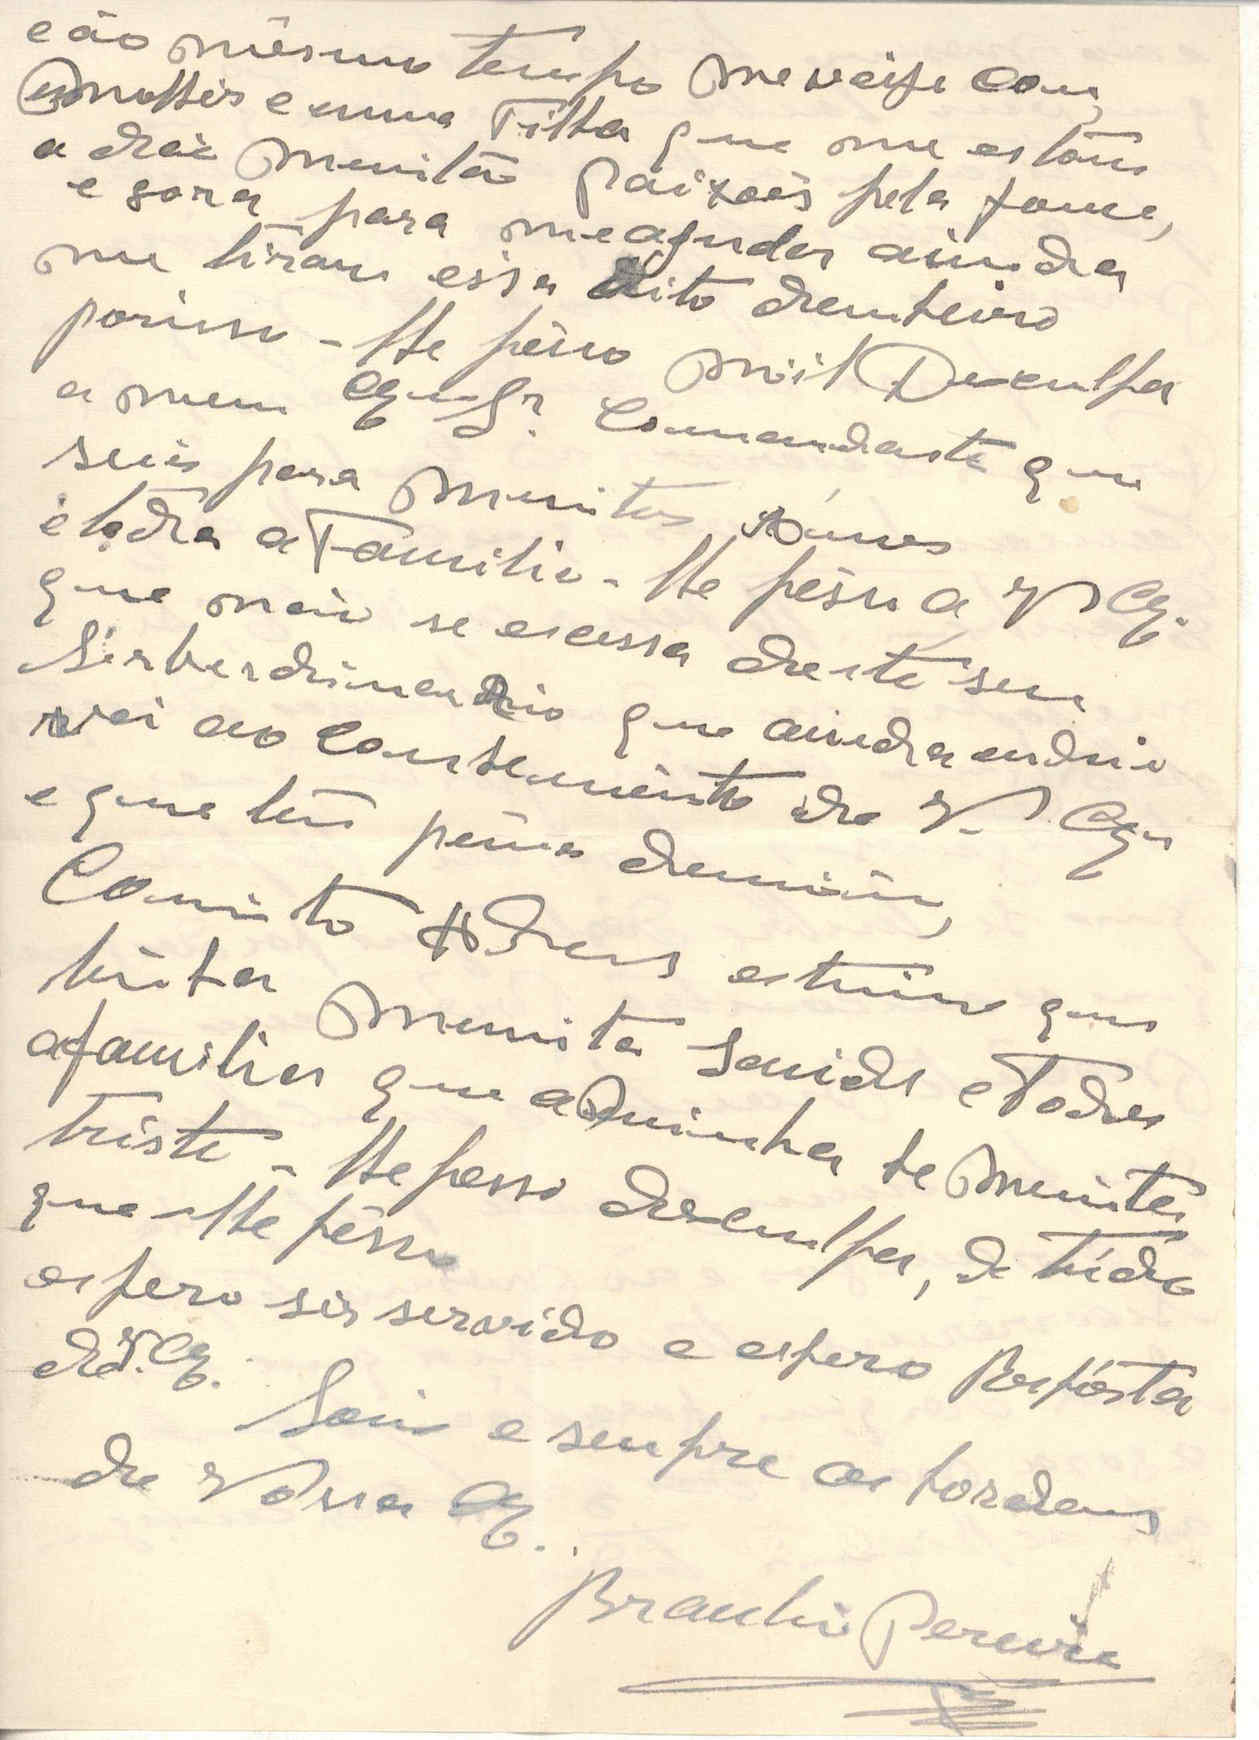 e ão mêsmo tempo me veije com
molher e uma Filha que me estam
a dár muitas páixoes pela fome,
e gora para me ajudar ainda
me tiram essa dito denheiro
porisso - lhe pésso mil Desculpa
a meu Ex Sr. Comandante que
seija para muitos Ânnos
e tôda a Familia - lhe pésso a V Ex.
que não se escessa deste seu
Surbordinando que ainda endivi
vei ao Consemento de V. Exa
e que têm pêna demim,
Comito A Deus estimo que
tinha muita Saude e Toda
a familia que a minha he muito
triste - lhe pesso desculpa, de túdo
que lhe pésso
espero ser servido e espero Respósta
de V. Ex.
Sou e sempre as hordens
de Vossa Ex.
Braulio Pereira